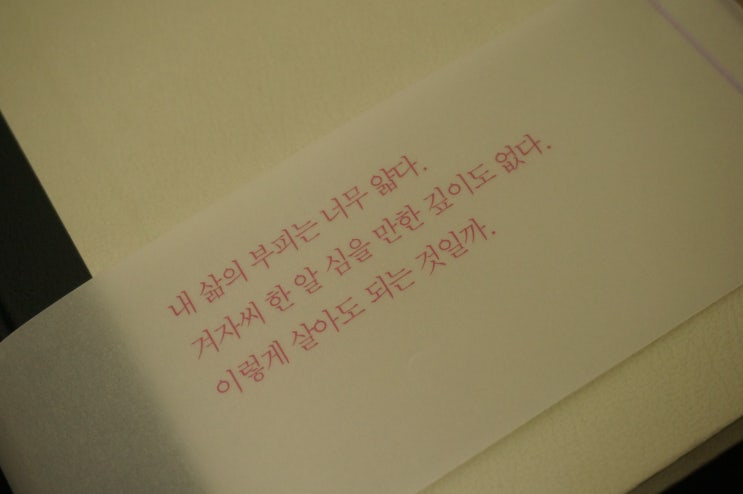 내 삶의 부피는 너무 얇다.
겨자씨 한 알 심을 만한 깊이도 없다.
이렇게 살아도 되는 것일까.